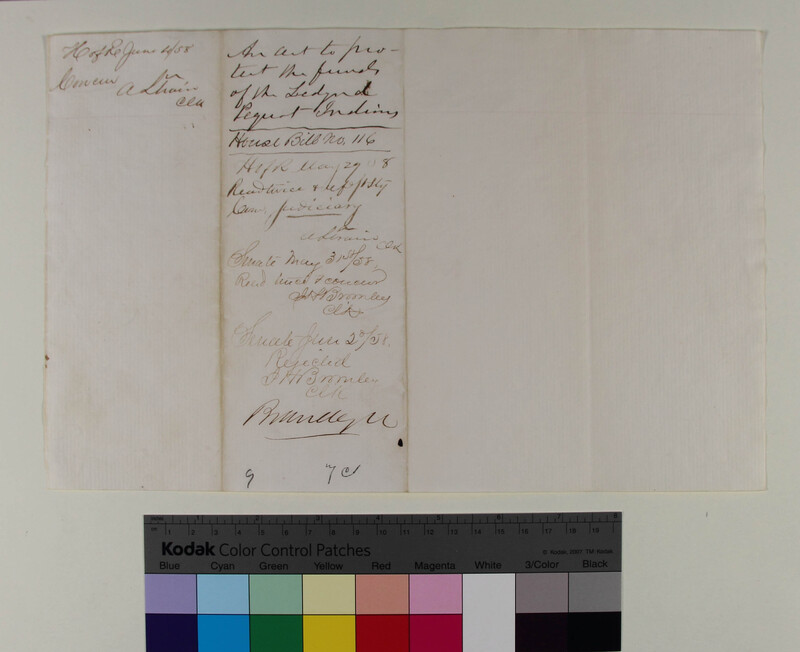 H of R June 4/58
Concur
A Strain
Clk
An act to pro-
tect the funds
of the Ledyard
Pequot Indians
House Bill No. 116
H of R May 29 58
Read twice & ref. to Jt
Com. judiciary
A Strain
Clk
Senate May 31st/58.
Read twice & concur
I H Bromley
Clk
Senate June 2d/58.
Rejected
I H Bromley
Clk
Brandegee
9 7 Cl
Kodak Color Control Patches
© Kodak, 2007 TM: Kodak
Blue Cyan Green Yellow Red Magenta White 3/Color Black